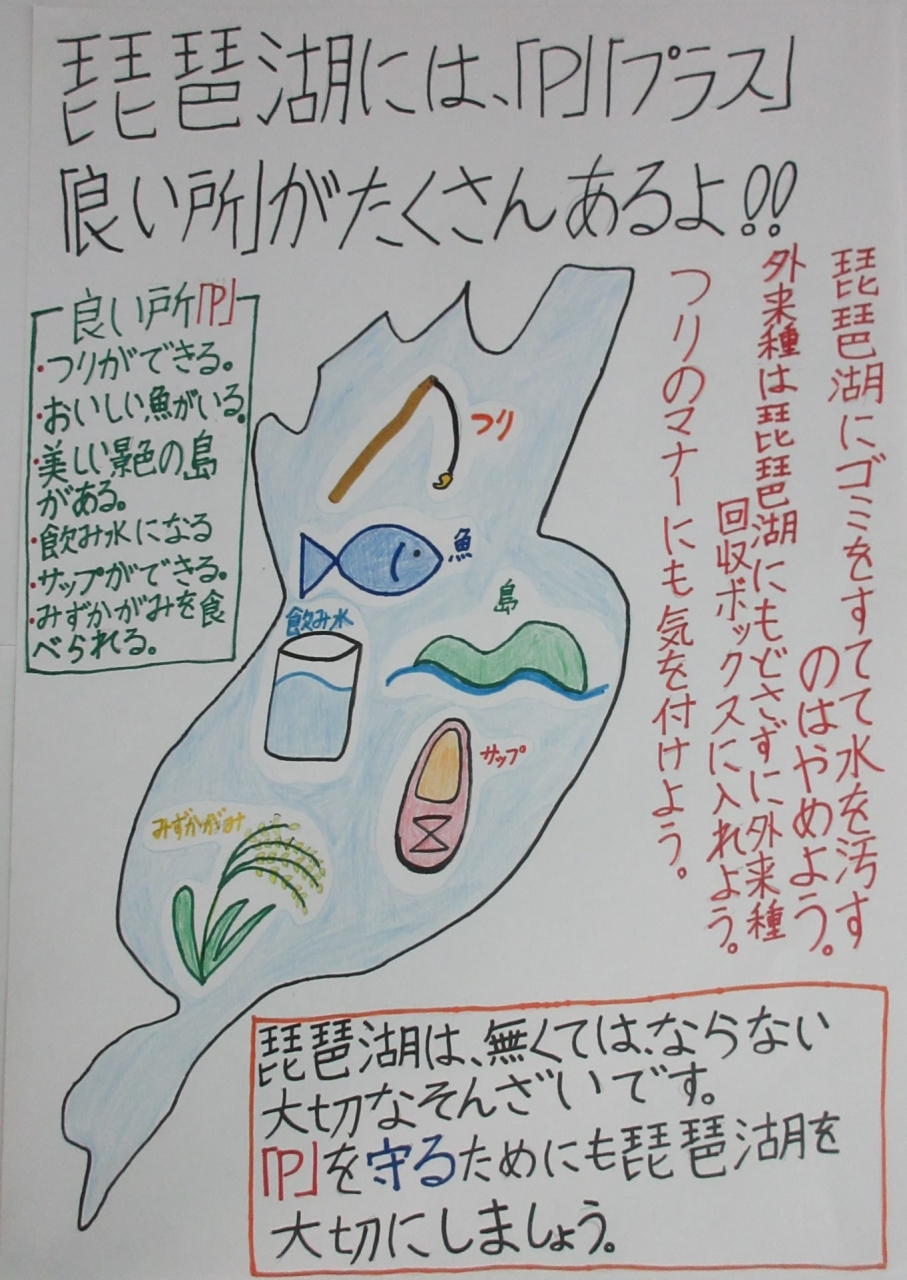 琵琶湖には、「P」「プラス」
「良い所」がたくさんあるよ!!
琵琶湖にゴミをすてて水を汚す
のはやめよう。
外来種は琵琶湖にもどさずに外来種
回収ボックスに入れよう。
つりのマナーにも気を付けよう。
良い所「P」
・つりができる。
・おいしい魚がいる。
・美しい景色の島
がある。
・飲み水になる
・サップができる。
・みずかがみを食
べられる。
つり
魚
飲み水
島
サップ
みずかがみ
琵琶湖は、無くてはならない
大切なそんざいです。
「P」を守るためにも琵琶湖を
大切にしましょう。